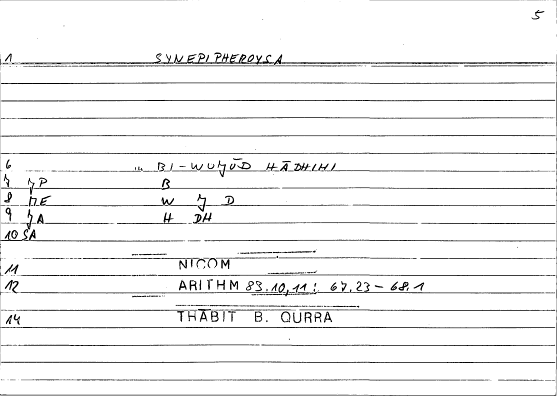 5
1 SYNEPIPHEROYSA
6 BI-WUJŪD HĀDHIHI
B
8 W J D
9 JA H DH
10 SA
11 NICOM
12 ARITHM 83.10,11: 67,23-68.1
14 THĀBIT B. QURRA